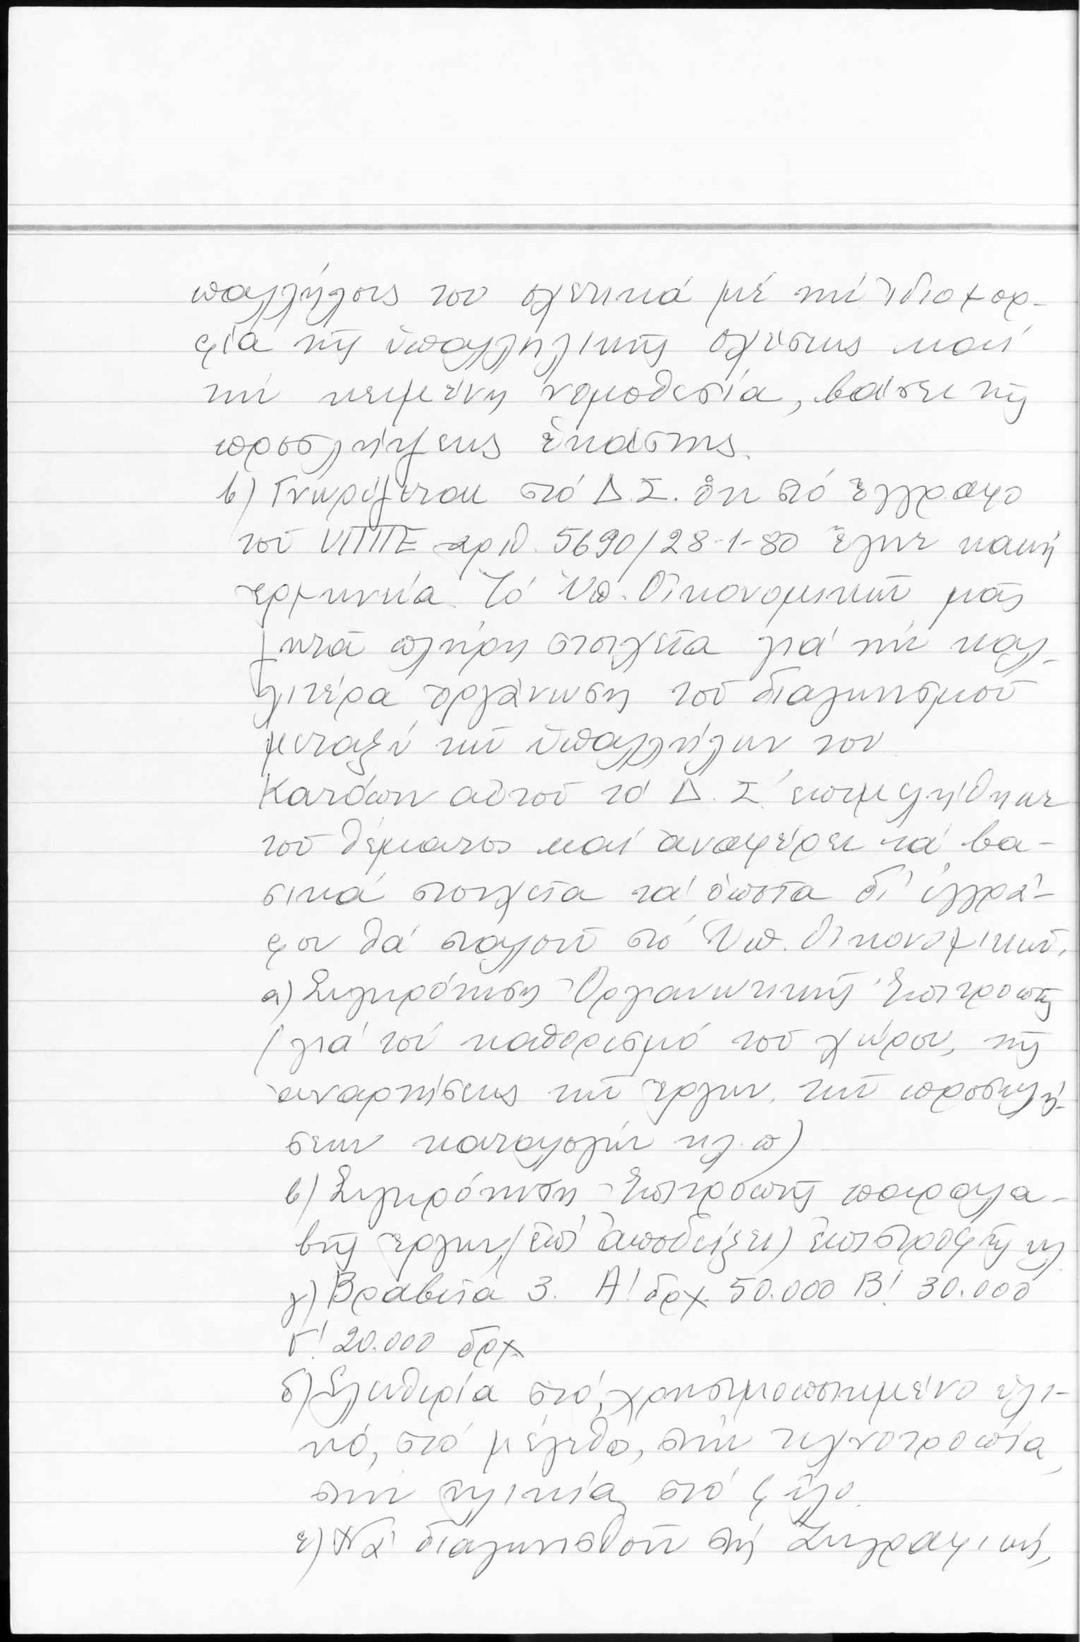 ὑπαλλήλους του σχετικά μέ τήν ἰδιομορ-
φία τῆς ὑπαλληλικῆς σχέσεως καί
τήν κειμένη νομοθεσία, βάσει τῆς
προσλήψεως ἑκάστης.
β) Γνωρίζεται στό Δ.Σ. ὅτι στό ἔγγραφο
τοῦ ΥΠΠΕ ἀριθ. 5690/28-1-80 ἔγινε κακή
ἑρμηνεία. Τό Ὑπ. Οἰκονομικῶν μᾶς
ζητᾶ πλήρη στοιχεῖα γιά τήν καλ-
λιτέρα ὀργάνωση τοῦ διαγωνισμοῦ
μεταξύ τῶν ὑπαλλήλων του.
Κατόπιν αὐτοῦ τό Δ.Σ. ἐπιμελήθηκε
τοῦ θέματος καί ἀναφέρει τά βα-
σικά στοιχεῖα τά ὁποῖα δι' ἐγγρά-
φου θά σταλοῦν στό Ὑπ. Οἰκονομικῶν.
α) Συγκρότηση Ὀργανωτικῆς Ἐπιτροπῆς
(γιά τόν καθορισμό τοῦ χώρου, τῆς
ἀναρτήσεως τῶν ἔργων, τῶν προσκλή-
σεων καταλόγων κλ.π)
β) Συγκρότηση Ἐπιτροπῆς παραλα-
βῆς ἔργων, (ἐπί ἀποδείξει) ἐπιστροφῆς κλ
γ) Βραβεῖα 3. Α! δρχ. 50.000 Β! 30.000
Γ! 20.000 δρχ.
δ) Ἐλευθερία στό χρησιμοποιημένο ὑλι-
κό, στό μέγεθο, στήν τεχνοτροπία,
στήν ἡλικία, στό φύλο.
ε) Νά διαγωνισθοῦν στή Ζωγραφική,